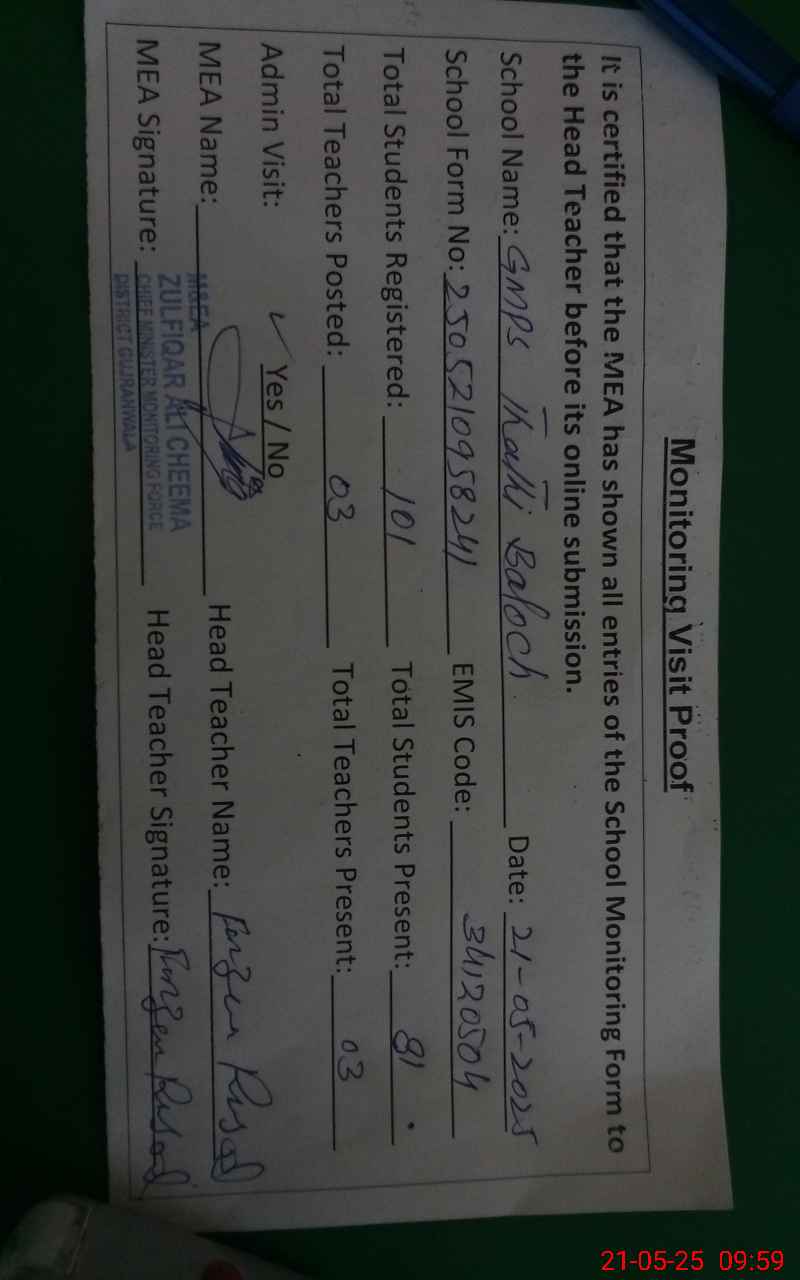 Monitoring Visit Proof
It is certified that the MEA has shown all entries of the School Monitoring Form to
the Head Teacher before its online submission.
School Name: GMPS Thatti Baloch Date: 21-05-2025
School Form No: 2505210958241 EMIS Code: 34120504
Total Students Registered: 101 Total Students Present: 81
Total Teachers Posted: 03 Total Teachers Present: 03
Admin Visit: ✓ Yes / No
MEA Name: Head Teacher Name:
MEA Signature: Head Teacher Signature:
M&EA
ZULFIQAR ALI CHEEMA
CHIEF MINISTER MONITORING FORCE
DISTRICT GUJRANWALA
21-05-25 09:59